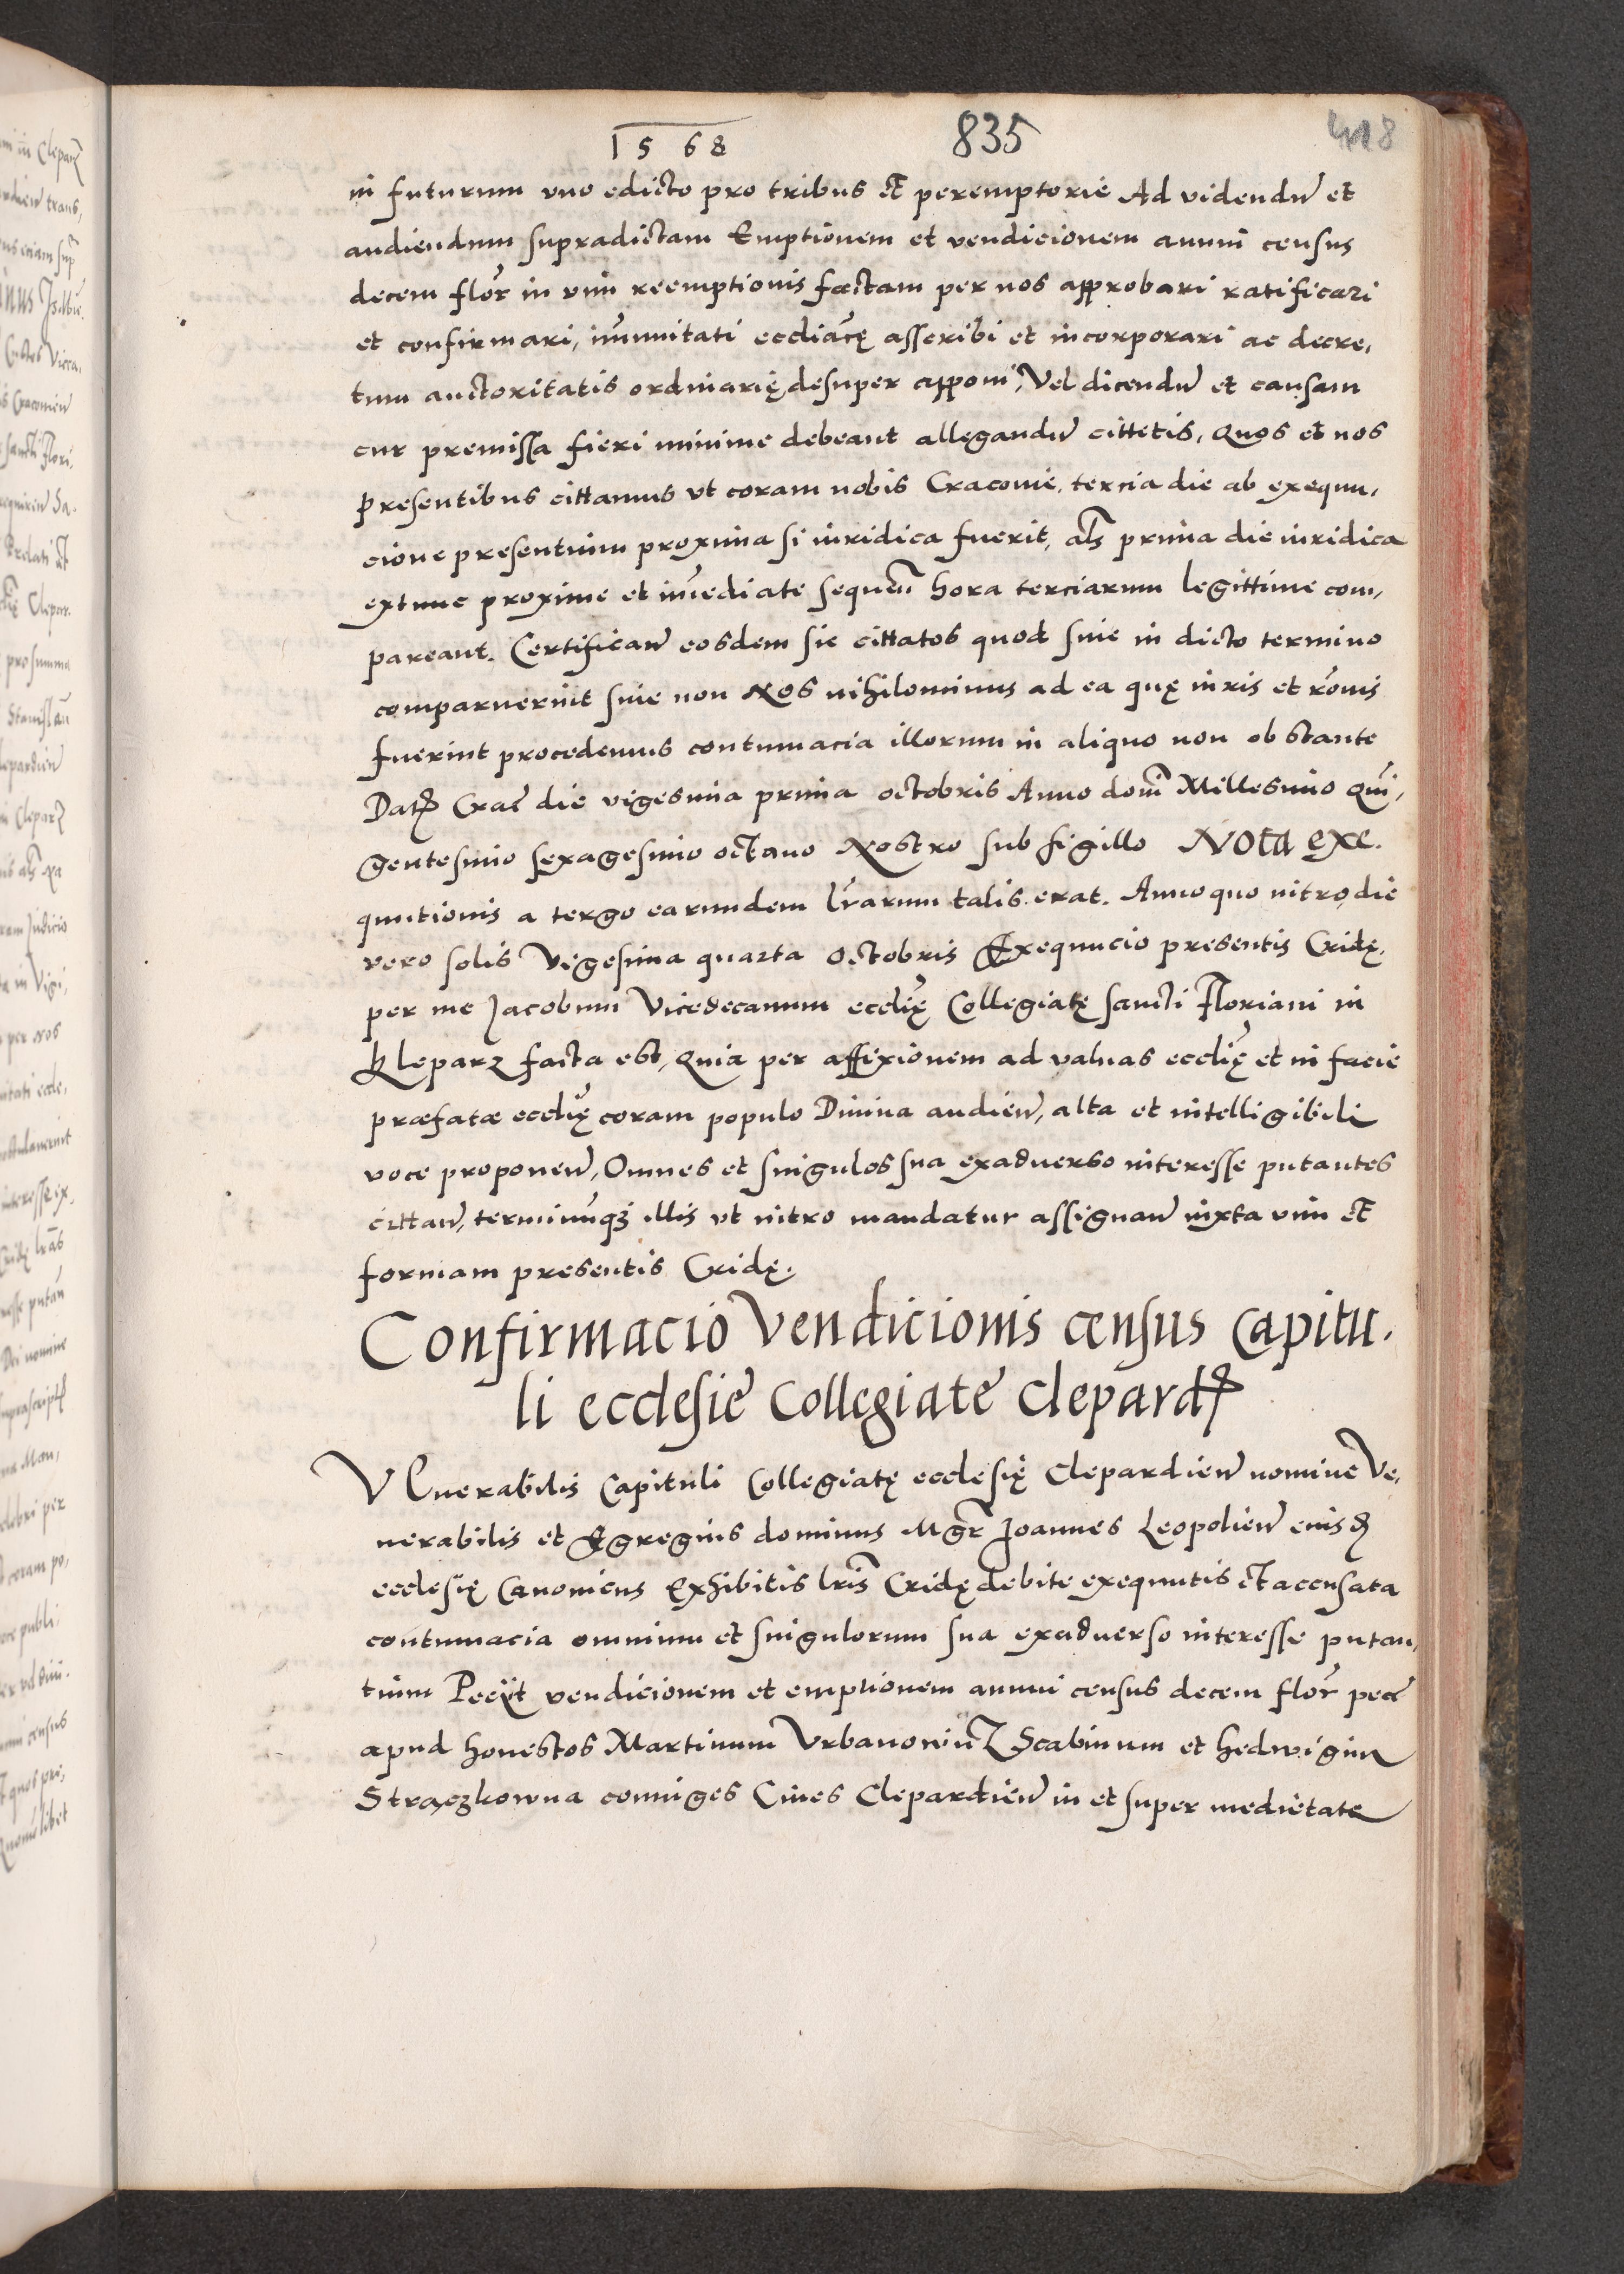 1568 835 418
in futurum vno edicto pro tribus et peremptorie Ad videndũ et
audiendum supradictam Emptionem et vendicionem annui census
decem flor in vim reemptionis factam per nos approbari ratificari
et confirmari, im̃unitati eccl̃iacę asscribi et incorporari ac decre,
tum auctoritatis ordinarię desuper apponi, Vel dicendũ et causam
cur premissa fieri minime debeant allegandũ cittetis, Quos et nos
presentibus cittamus vt coram nobis Cracouie, tercia die ab exequu,
cione presentium proxima si iuridica fuerit, al̃s prima die iuridica
extunc proxime et im̃ediate sequeñ hora terciarum legittime com,
pareant. Certificañ eosdem sic cittatos quod siue in dicto termino
comparuerint siue non Nos nihilominus ad ea quę iuris et rõnis
fuerint procedemus contumacia illorum in aliquo non obstante
Datƺ Crac̃ die vigesima prima octobris Anno dom̃ Millesimo Quĩ,
gentesimo sexagesimo octauo Nostro sub sigillo NOTA EXE.
quutionis a tergo earundem lr̃arum talis erat. Anno quo intro, die
vero solis Vigesima quarta Octobris Exequucio presentis Cridę,
per me Jacobum Vicedecanum eccl̃ię Collegiatę sancti Floriani in
Kleparz facta est, Quia per affixionem ad valuas eccl̃ię et in facie
præfatæ eccl̃ię coram populo Diuina audieñ, alta et intelligibili
voce proponeñ, Omnes et singulos sua exaduerso interesse putantes
cittañ, terminũqꝫ illis vt intro mandatur assignañ iuxta vim et
formam presentis Cridę.
Confirmacio Vendicionis census Capitu.
li ecclesie Collegiate Clepardƺ
VEnerabilis Capituli Collegiatę ecclesię Clepardieñ nomine Ve,
nerabilis et Egregius dominus Mgr̃ Joannes Leopolieñ eiusdƺ
ecclesię Canonicus Exhibitis lr̃is Cridę debite exequutis et accusata
contumacia omnium et singulorum sua exaduerso interesse putan,
tium Peciit vendicionem et emptionem annui census decem flor̃ pec̃
apud honestos Martinum Vrbanowicz Scabinum et Hedwigim
Strączkowna coniuges Ciues Clepardieñ in et super medietate